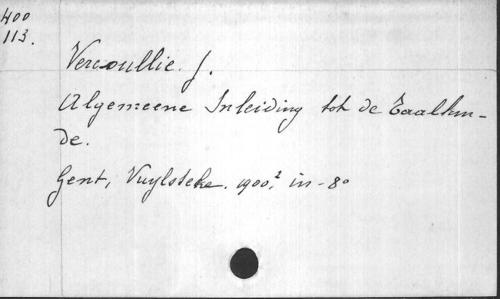 400
113.
Vercoullie. J.
Algemeene Inleiding tot de Taalkun-
de.
Gent, Vuylsteke. 1900.² in-8°